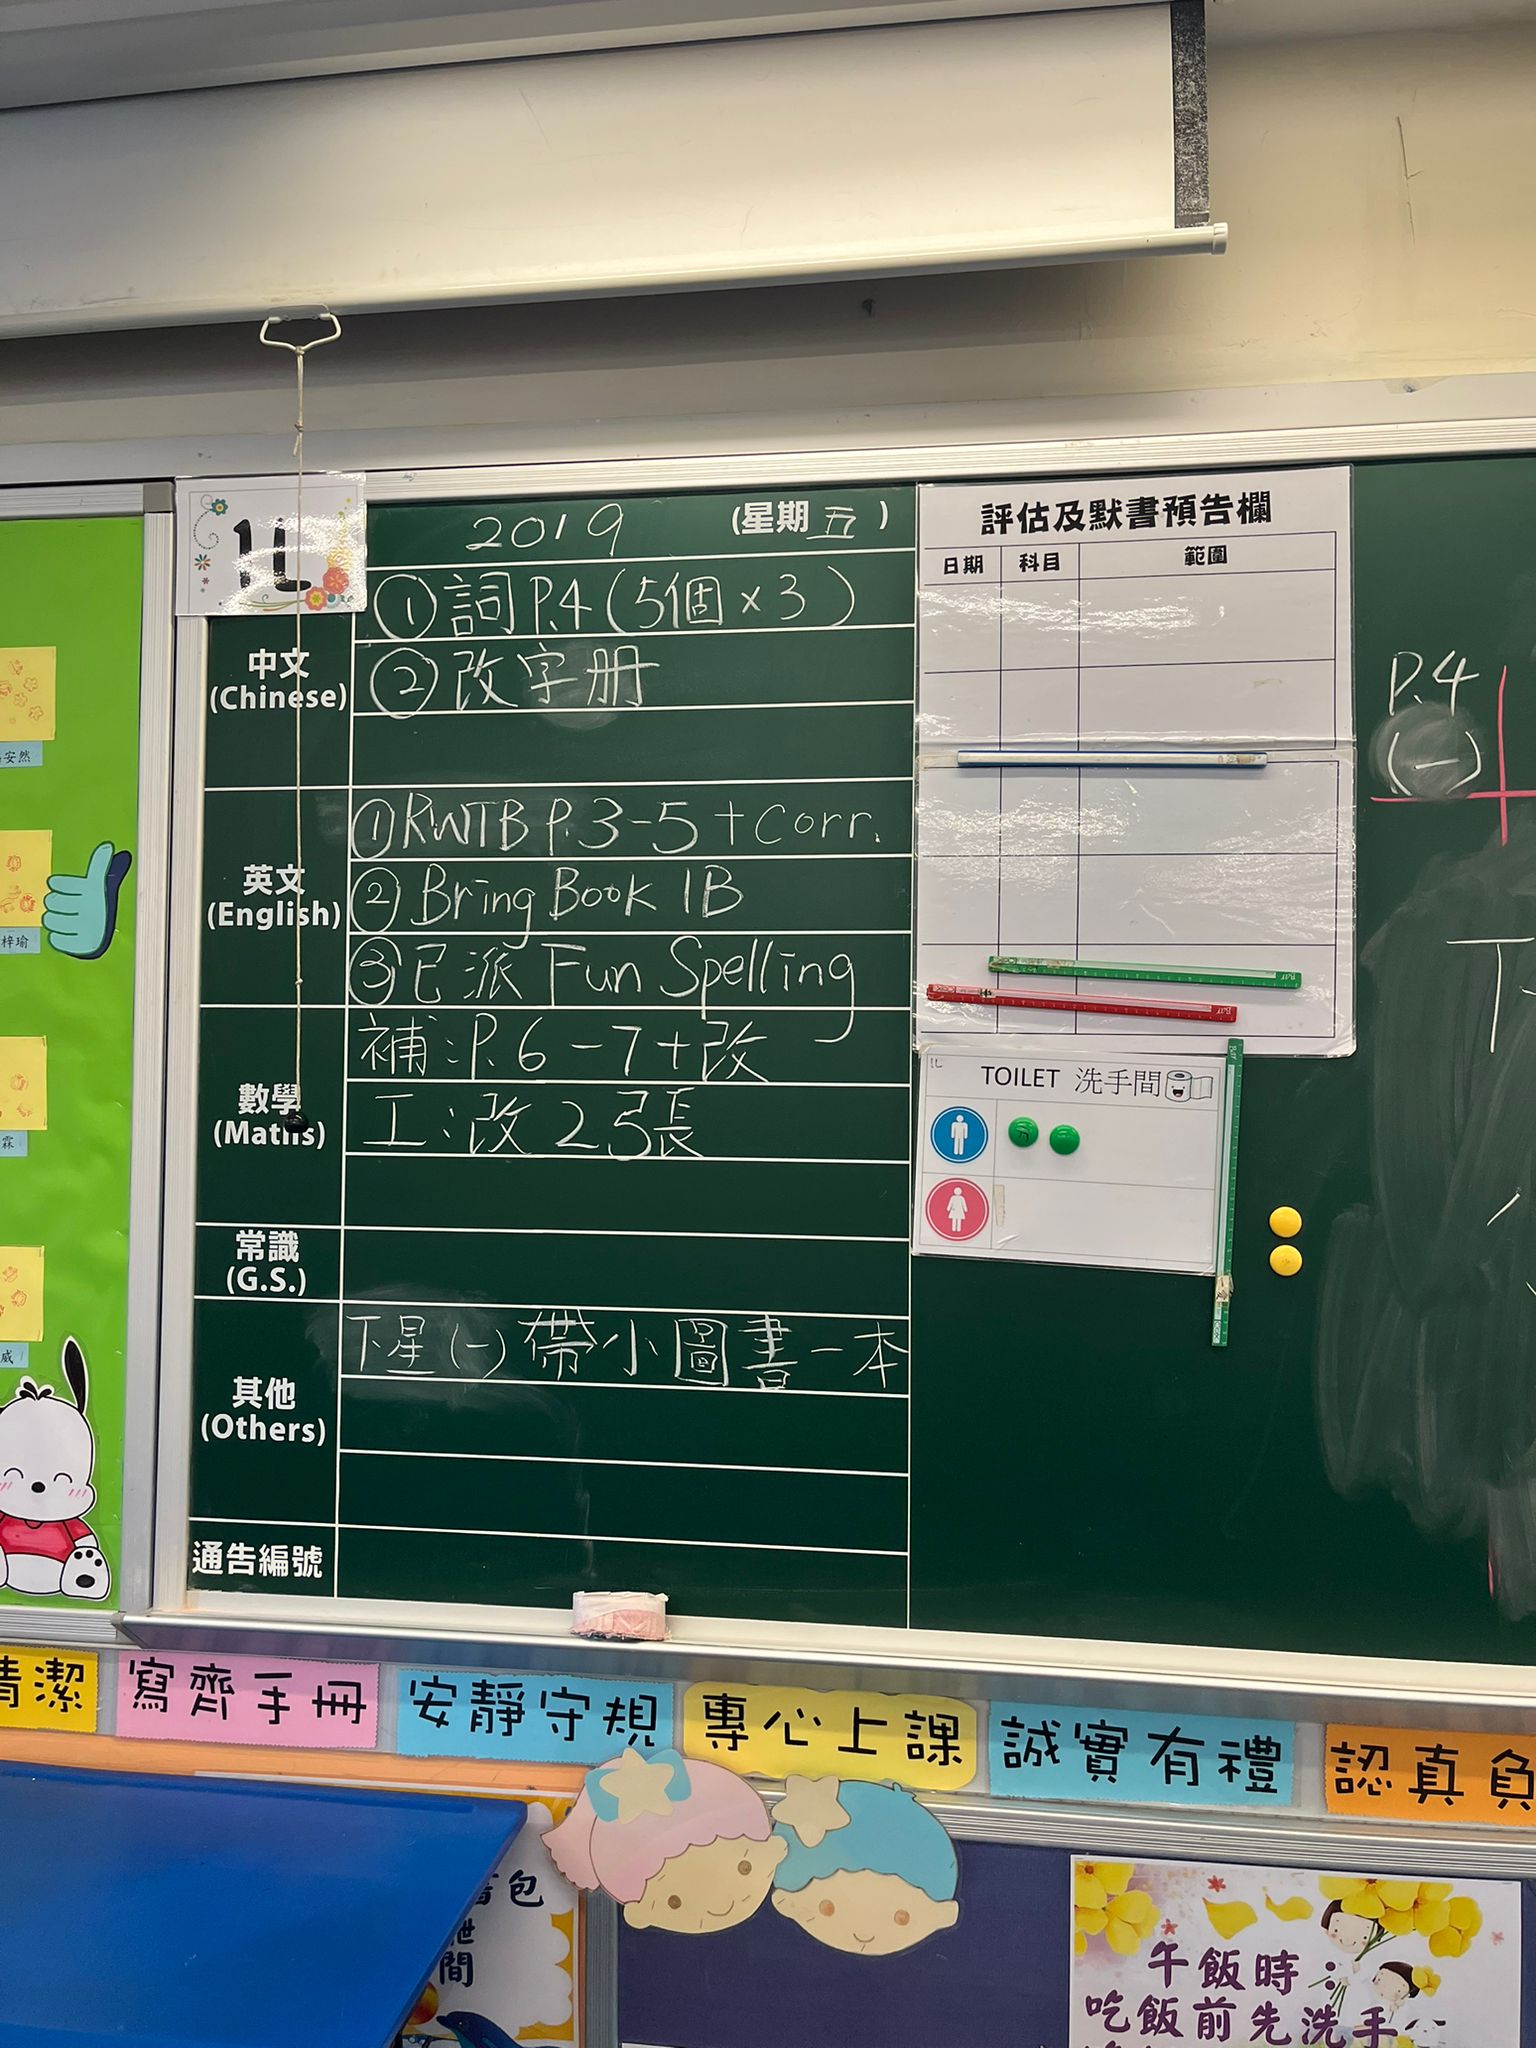 1L
2019 (星期五)
中文
(Chinese)
①詞P.4(5個×3)
②改字册
英文
(English)
①RWTB P.3-5+Corr.
②Bring Book 1B
③已派 Fun Spelling
數學
(Maths)
補:P.6-7+改
工:改2張
常識
(G.S.)
其他
(Others)
下星(一)帶小圖書一本
通告編號
評估及默書預告欄
日期 科目 範圍
1L
TOILET 洗手間
P.4
(一)
安然
梓瑜
霖
威
清潔
寫齊手冊
安靜守規
專心上課
誠實有禮
認真負
書包
間
午飯時:
吃飯前先洗手